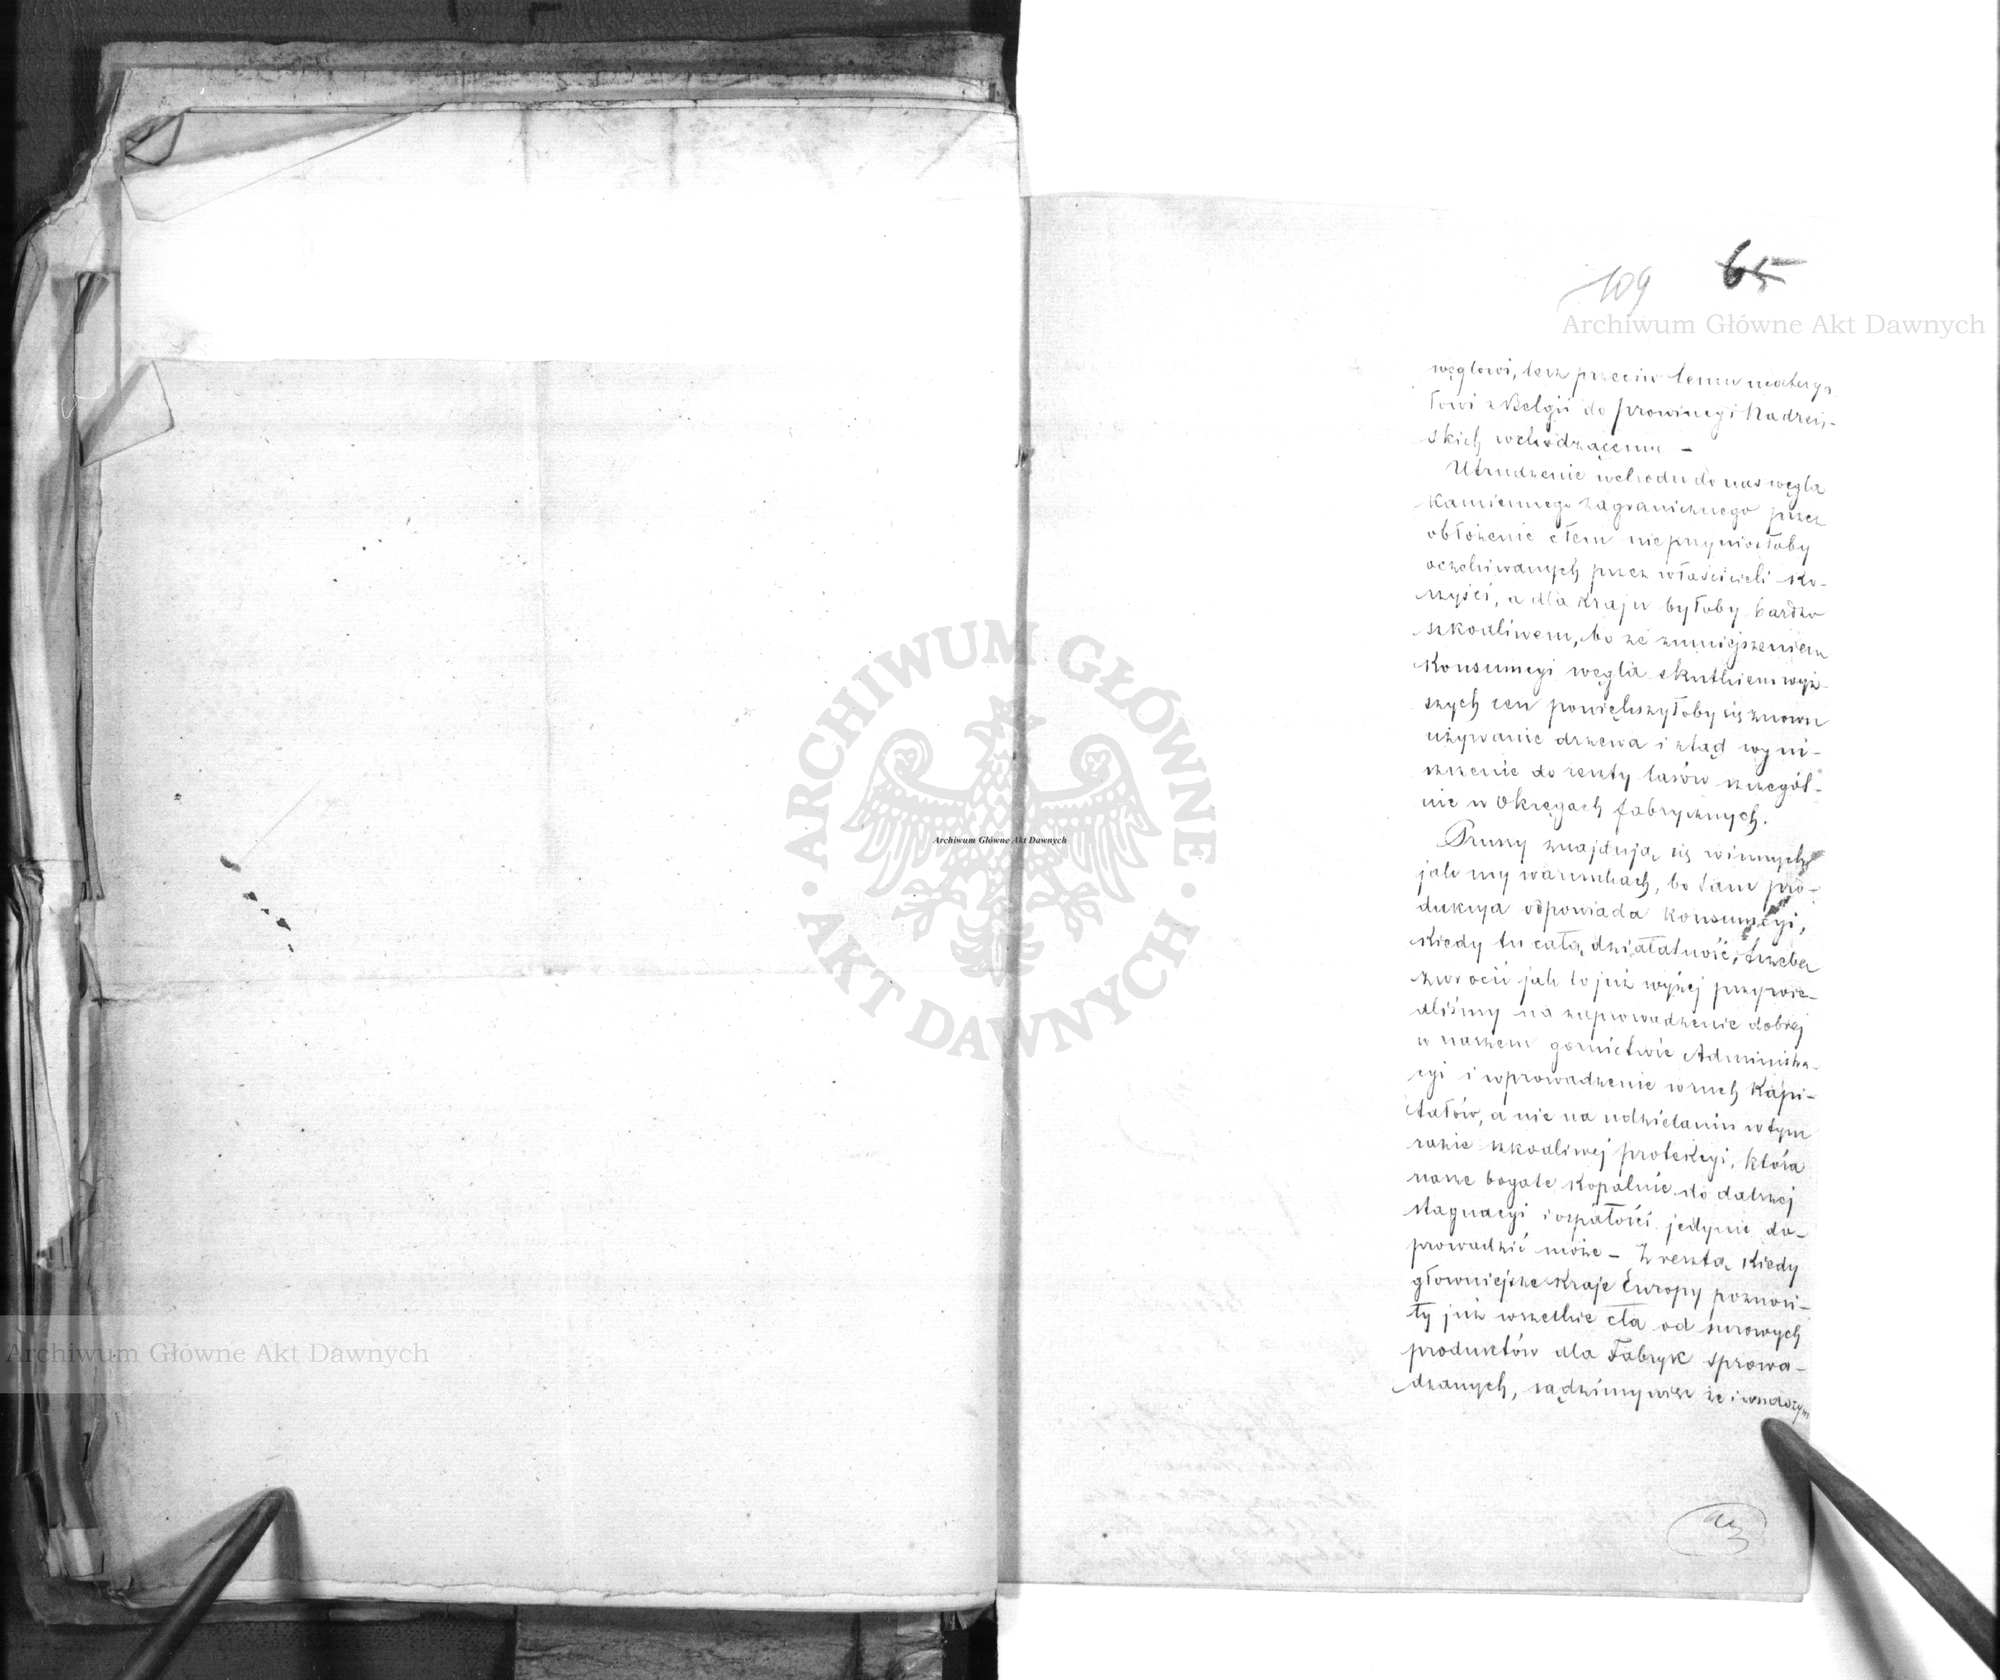 109 65
Archiwum Główne Akt Dawnych
węglowi, lecz przeciw temu materya
łowi z Belgii do prowincyi Nadreń-
skich wchodzącemu –
Utrudzenie wchodu do nas węgla
Kamiennego zagranicznego przez
obłożenie cłem nieprzyniosłoby
oczekiwanych przez właścicieli ko-
rzyści, a dla Kraju byłoby bardzo
szkodliwem, bo ze zmniejszeniem
Konsumcyi węgla skutkiem wyż-
szych cen powiększyłoby się znowu
używanie drzewa i ztąd wyni-
szczenie do reszty lasów szczegól-
nie w Okręgach fabrycznych.
Prusy znajdują się w innych
jak my warunkach, bo tam pro-
dukcya odpowiada konsumcyi,
Kiedy tu całą działalność, trzeba
zwrócić jak to już wyżej przywie-
dliśmy na zaprowadzenie dobrej
w naszem gornictwie Administra-
cyi i wprowadzenie w ruch Kapi-
tałów, a nie na udzielaniu w tym
razie szkodliwej protekcyi, która
nasze bogate Kopalnie do dalszej
stagnacyi i ospałości jedynie do-
prowadzić może – Zresztą Kiedy
głowniejsze Kraje Europy poznosi-
ły już wszelkie cła od surowych
produktów dla Fabryk sprowa-
dzanych, sądzimy więc że i
ARCHIWUM GŁÓWNE
AKT DAWNYCH
Archiwum Główne Akt Dawnych
Archiwum Główne Akt Dawnych